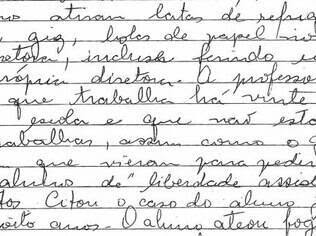 atiram latas de refrig
giz, bolas de papel no
etora, inclusive ferindo
rópria diretora. A professo
que trabalha há vinte
escola e que não esta
abalhar, assim como o
que vieram para pedir
aluno de "liberdade assis
tos Citou o caso do aluno
oito anos. O aluno ateou fog